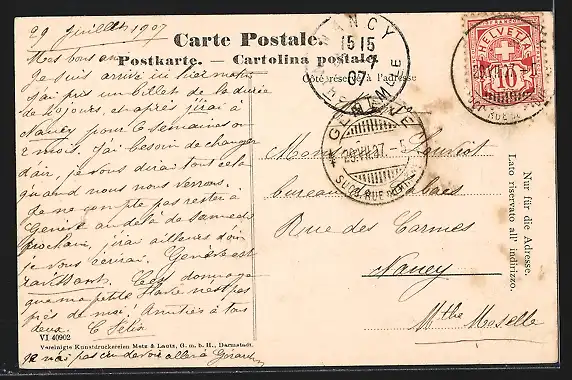 29 Juillet 1907
Carte Postale.
Postkarte. — Cartolina postale.
Côté réservé à l'adresse
Mes bons amis
Je suis arrivé ici hier matin
j'ai pris un billet de la durée
de 10 jours, et après j'irai à
Nancy pour 6 semaines ou
2 mois. J'ai besoin de changer
d'air, je vous dirai tout cela
quand nous nous verrons.
Je ne compte pas rester à
Genève au delà de samedi
prochain, j'irai ailleurs d'où
je vous écrirai. Genève est
ravissant. C'est dommage
que ma petite n'est pas
près de moi. Amitiés à tous
deux.
VI 40902
Vereinigte Kunstdruckereien Metz & Lautz, G. m. b. H., Darmstadt.
je n'ai pas
NANCY
15 15
7
07
MEURTHE
GENÈVE
29.VII.07.-5
SUCC. RUE
HELVETIA
10
29.VII.07
SUCC. RUE
Monsieur
bureau
Rue des Carmes
Nancy
Mthe Moselle
Nur für die Adresse.
Lato riservato all' indirizzo.